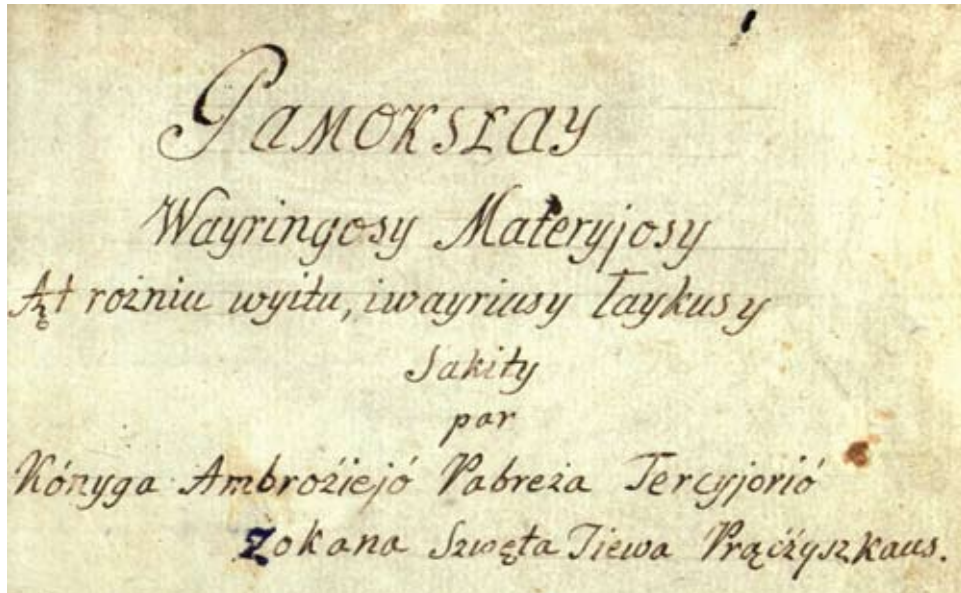 PAMOKSŁAY
Wayringosy Materyjosy
Ąt rożniu wyitu, iwayriusy łaykusy
Sakity
par
Kónyga Ambroźiejó Pabreża Tercyjorió
Zokana Szwęta Tiewa Prąćżyszkaus.